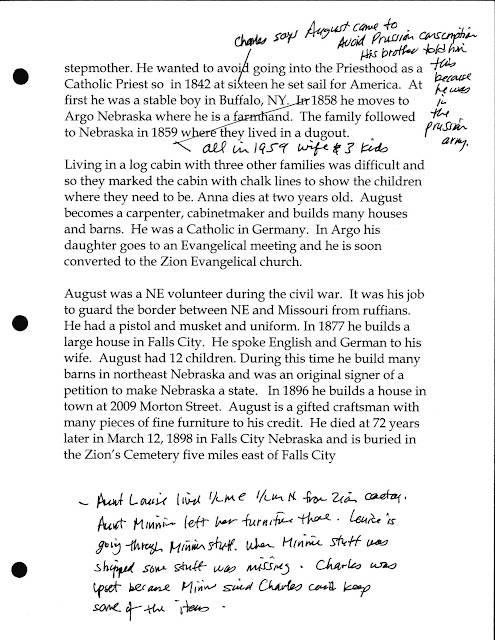 Charles says August came to
Avoid Prussian conscription
His brother told him
this
because
he was
in
the
prussian
army.
stepmother. He wanted to avoid going into the Priesthood as a
Catholic Priest so in 1842 at sixteen he set sail for America. At
first he was a stable boy in Buffalo, NY. In 1858 he moves to
Argo Nebraska where he is a farmhand. The family followed
to Nebraska in 1859 where they lived in a dugout.
all in 1959 wife & 3 kids
Living in a log cabin with three other families was difficult and
so they marked the cabin with chalk lines to show the children
where they need to be. Anna dies at two years old. August
becomes a carpenter, cabinetmaker and builds many houses
and barns. He was a Catholic in Germany. In Argo his
daughter goes to an Evangelical meeting and he is soon
converted to the Zion Evangelical church.
August was a NE volunteer during the civil war. It was his job
to guard the border between NE and Missouri from ruffians.
He had a pistol and musket and uniform. In 1877 he builds a
large house in Falls City. He spoke English and German to his
wife. August had 12 children. During this time he build many
barns in northeast Nebraska and was an original signer of a
petition to make Nebraska a state. In 1896 he builds a house in
town at 2009 Morton Street. August is a gifted craftsman with
many pieces of fine furniture to his credit. He died at 72 years
later in March 12, 1898 in Falls City Nebraska and is buried in
the Zion's Cemetery five miles east of Falls City
- Aunt Louise lived 1/2 m E 1/2 m N from Zion
Aunt Minnie left her furniture there. Louise is
going through Minnie stuff. When Minnie stuff was
shipped some stuff was missing. Charles was
upset because Minnie said Charles could keep
some of the items.